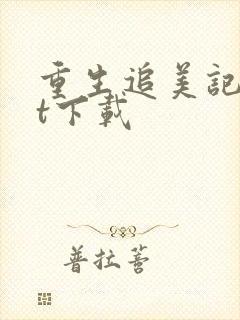 重生追美記
t下載
普拉菩